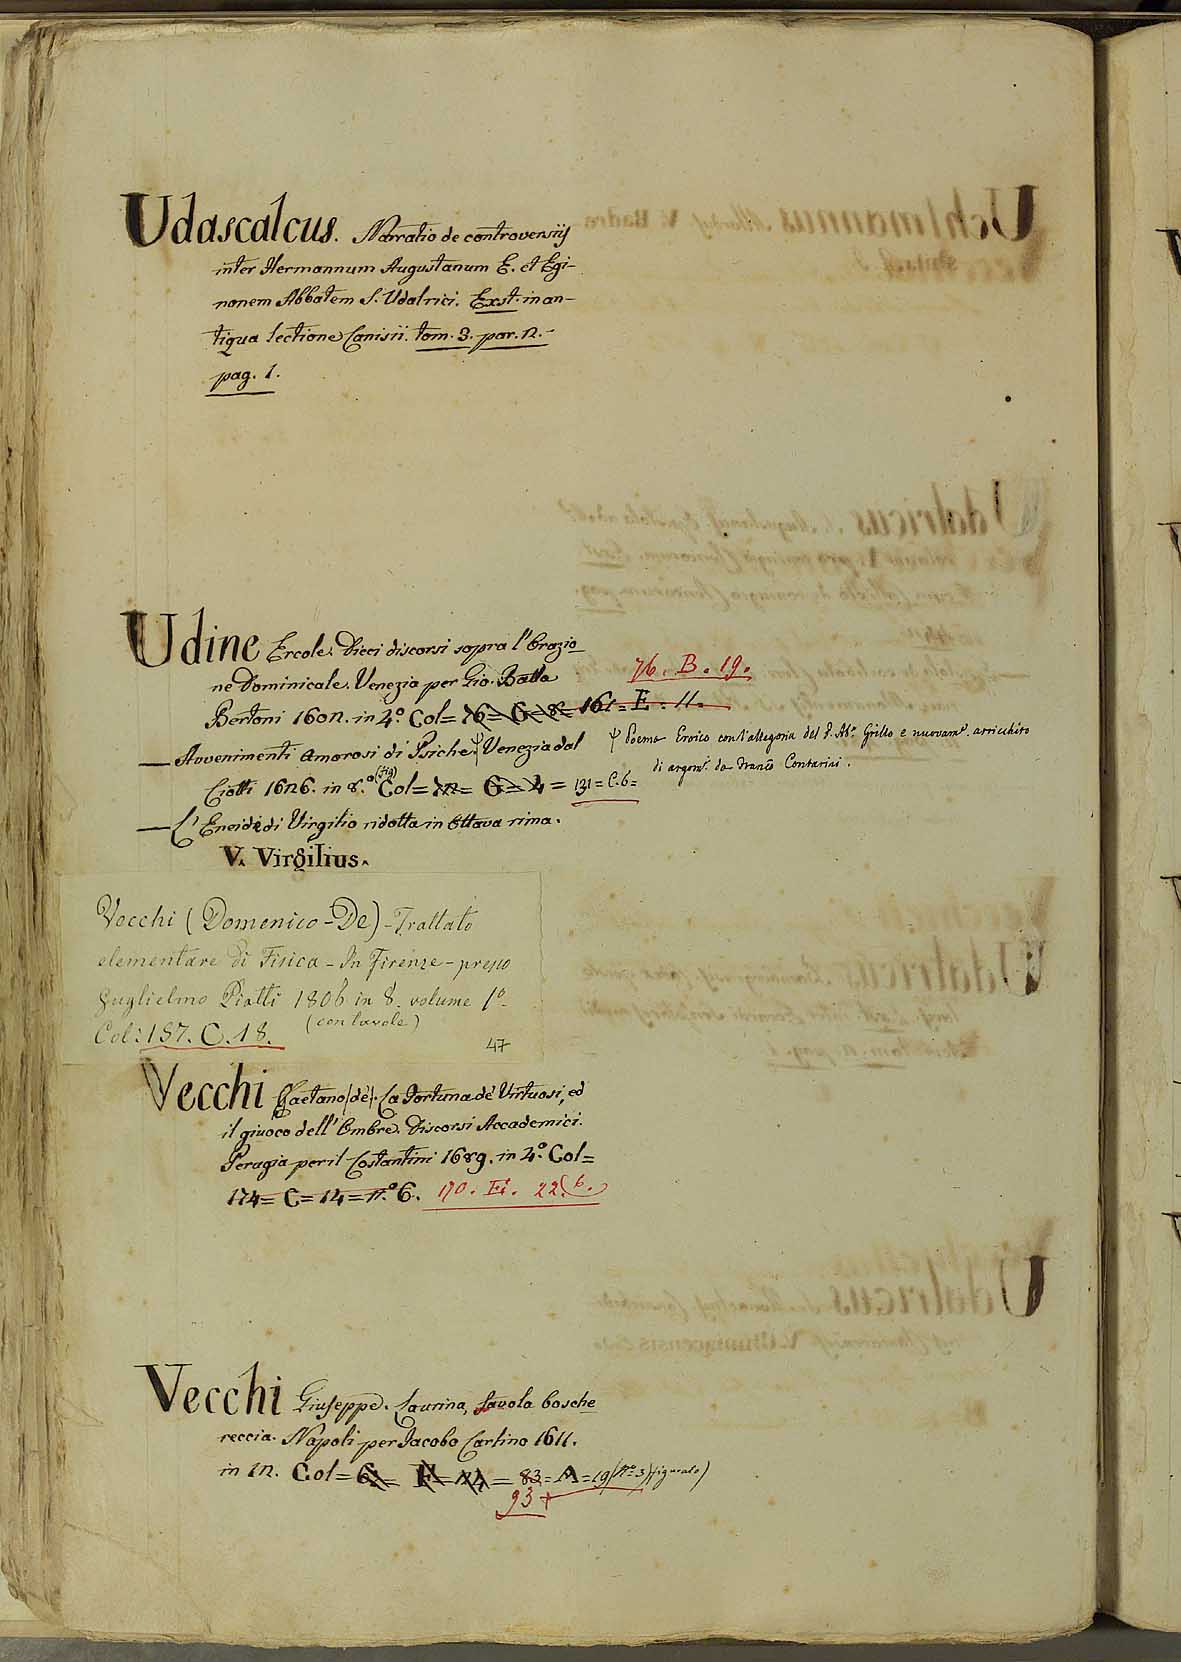 Udascalcus. Narratio de controversijs
inter Hermannum Augustanum E. et Egi-
nonem Abbatem S. Udalrici. Exst. in an-
tiqua lectione Canisii. tom. 3. par. 2.
pag. 1.
Udine Ercole. Dieci discorsi sopra l'Orazio
ne Dominicale. Venezia per Gio. Batta
76. B. 19.
Bertoni 1602. in 4.º Col= 76= G= 8= 161= E= 11.
— Avvenimenti amorosi di Psiche. Ψ Venezia dal
Ψ Poema Eroico con l'allegoria del P. Abe. Grillo e nuovame. arricchito
di argomti. da Franco Contarini.
Ciotti 1626. in 8.º (fig) Col= 12= G= 4= 131= C.6=
— L'Eneide di Virgilio ridotta in Ottava rima.
V. Virgilius.
Vecchi (Domenico-De) - Trattato
elementare di Fisica - In Firenze - presso
Guglielmo Piatti 1806 in 8. volume 1º
(con tavole)
Col: 187. C. 18.
47
Vecchi Gaetano (de). La Fortuna de' Virtuosi, ed
il giuoco dell'Ombre. Discorsi Accademici.
Perugia per il Costantini 1689. in 4.º Col=
174= C= 14= n.º 6. 170. Ei. 22(6.
Vecchi Giuseppe. Laurina, favola bosche
reccia. Napoli per Jacobo Carlino 1611.
in 12. Col= = 83= A= 19 (nº 3) (figurato)
93 +